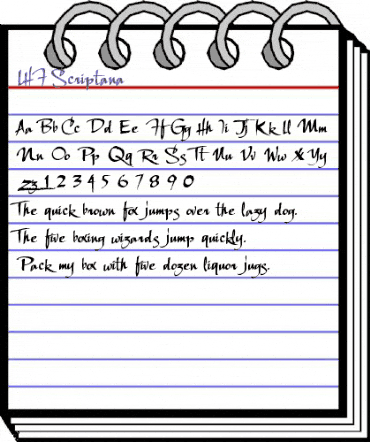 LHF Scriptana
Aa Bb Cc Dd Ee Ff Gg Hh Ii Jj Kk Ll Mm
Nn Oo Pp Qq Rr Ss Tt Uu Vv Ww Xx Yy
Zz 1 2 3 4 5 6 7 8 9 0
The quick brown fox jumps over the lazy dog.
The five boxing wizards jump quickly.
Pack my box with five dozen liquor jugs.